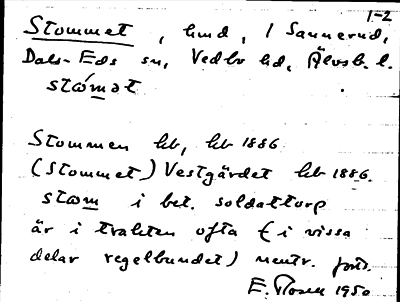 1-2
Stommet, hmd, I Sannerud,
Dals-Eds sn, Vedbo hd, Älvsb. l.
stώmət
Stommen hb, hb 1886
(Stommet) Vestgärdet hb 1886.
stωm i bet. soldattorp
är i trakten ofta (i vissa
delar regelbundet) neutr.
E. Rosen 1950